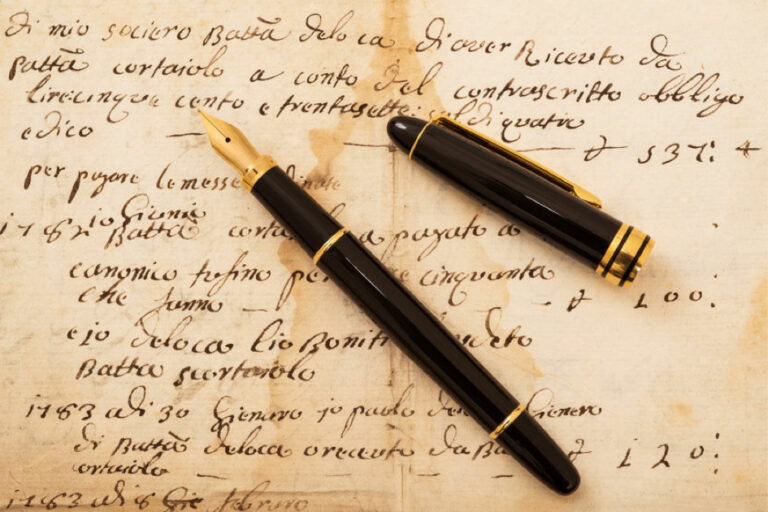 di mio sociero Batta deloca di aver Riceuto da
Batta cortaiolo a conto del contrascritto obbligo
lire cinque cento e trentasette: soldi quatro
e dico — — £ 537: 4
per pagare le messe
1782 10 Giugnio
Batta a pagato a
canonico tofino per cinquanta
che fanno — — £ 100:
e io deloca lio Boniti
Batta scortaiolo
1783 adi 30 Gienaro io paolo Gienero
di Batta deloca o receuto da £ 120:
cortaiolo
1783 adi 8 febraro